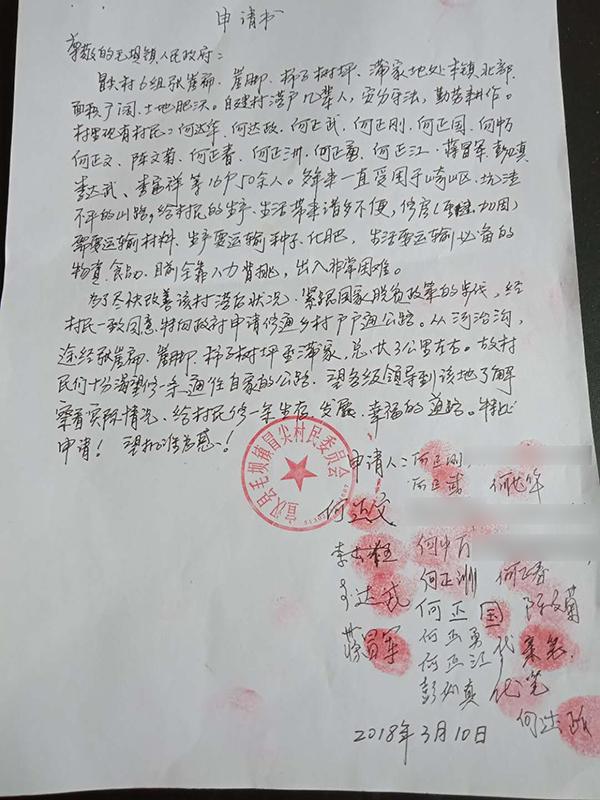 申请书
尊敬的毛坝镇人民政府:
冒尖村6组张崖扁、崖脚、柿子树坪、蒲家地处本镇北部,
面积广阔、土地肥沃。自建村落户几辈人,安分守法,勤劳耕作。
村里现有村民:何达华、何达政、何正武、何正刚、何正国、何中万
何正文、陈文菊、何正春、何正洲、何正勇、何正江、蒋昌军、彭真
李达武、李富祥等16户50余人。多年来一直受困于崎山区、坑洼
不平的山路,给村民的生产、生活带来诸多不便,修房(重建、加固)
需要运输材料、生产要运输种子、化肥,生活要运输必备的
物资、食品、目前全靠人力肩挑,出入非常困难。
为了尽快改善该村落后状况、紧跟国家脱贫政策的步伐,经
村民一致同意,特向政府申请修通乡村户户通公路。从河沿沟,
途经张崖扁、崖脚、柿子树坪至蒲家,总共3公里左右。故村
民们十分渴望修一条通往自家的公路、望各级领导到该地了解
察看实际情况、给村民修一条生存、发展、幸福的道路。特此
申请!望批准为感!
宣汉县毛坝镇冒尖村民委员会
申请人:何正刚
何正武 何达华
何正文
何中万
何正洲 何正春
李达武 何正国 陈文菊
何正勇 代
蒋昌军 何正江
彭真 代笔
何达政
2018年3月10日